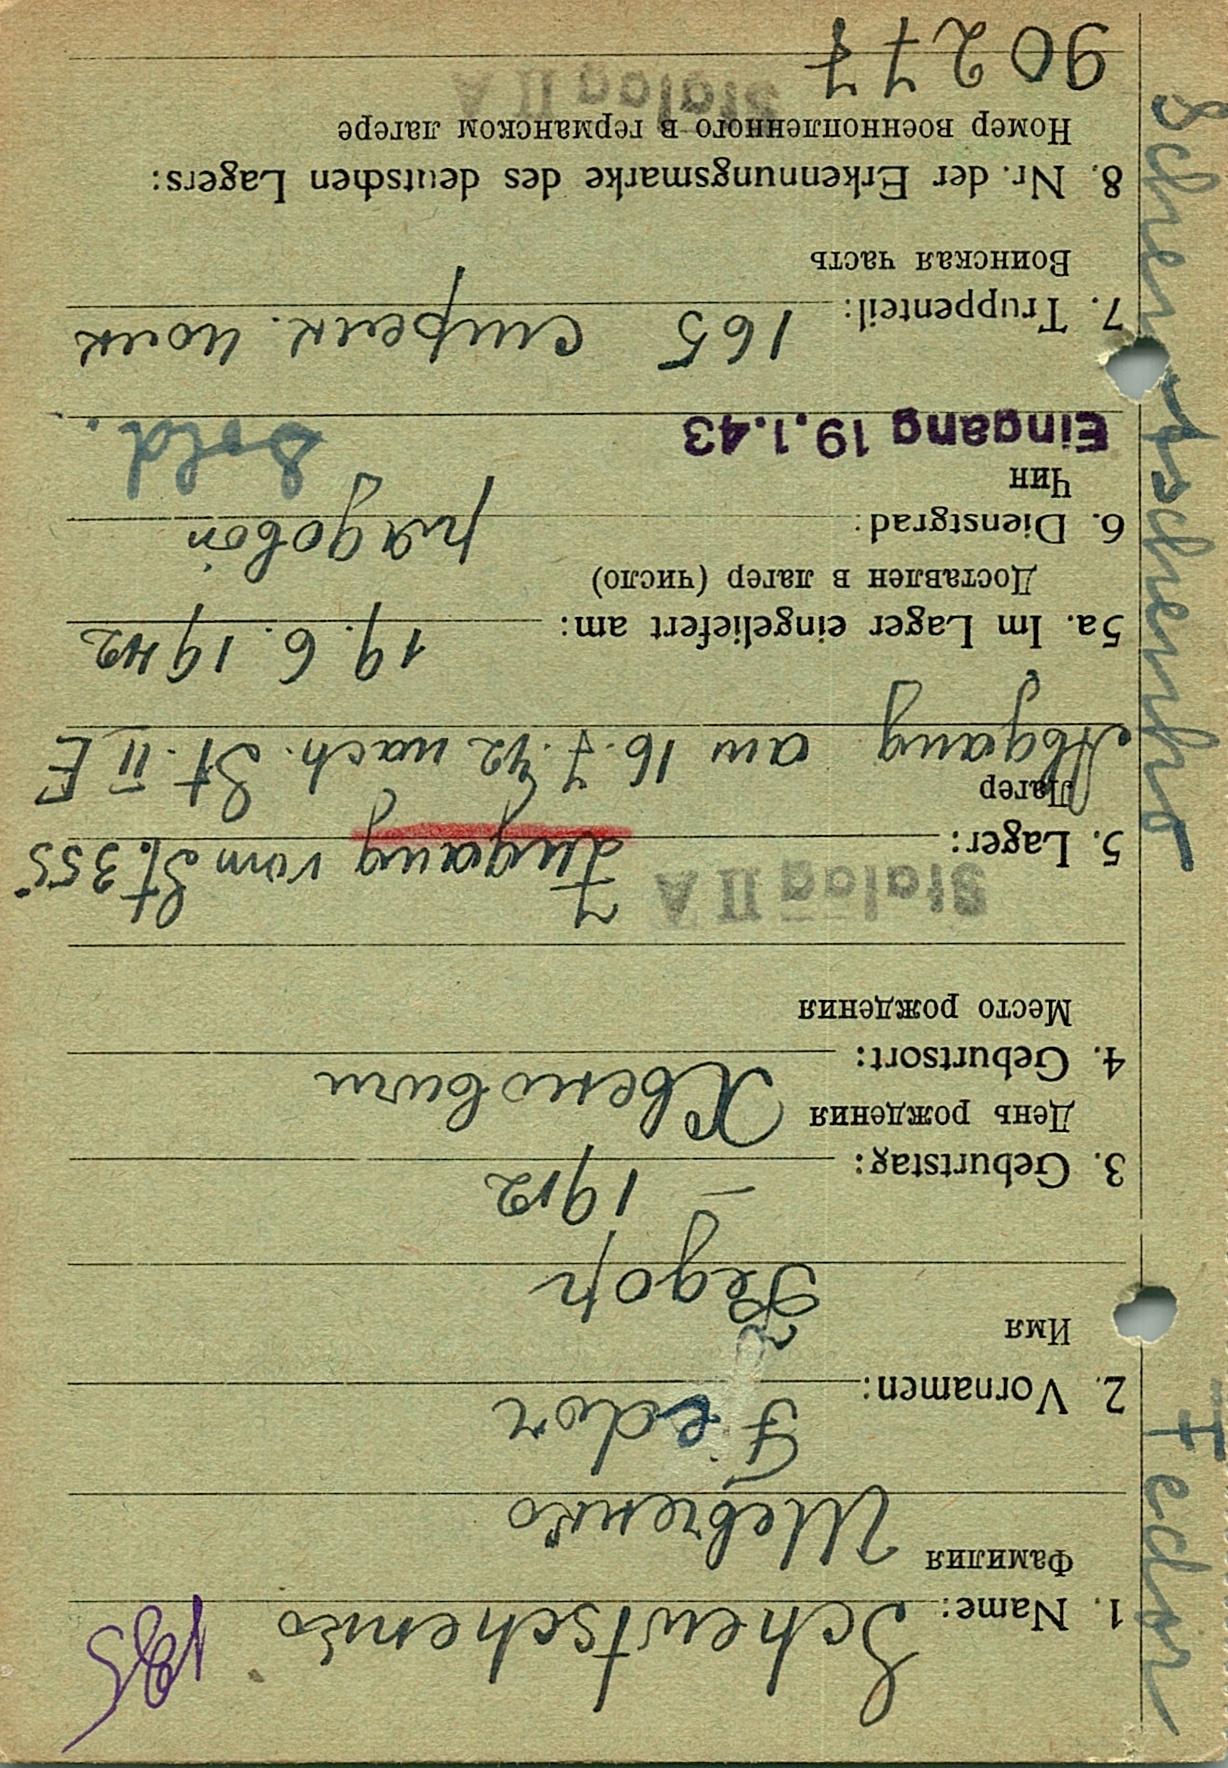 Schewtschenko Fedor
185
1. Name: Schewtschenko
Фамилия
Шевченко
2. Vornamen: Fedor
Имя
Фёдор
3. Geburtstag: – 1912
День рождения
4. Geburtsort:
Место рождения
5. Lager: Stalag II A Zugang vom St. 355
Лагер
Abgang am 16.7.42 nach St. II E
5a. Im Lager eingeliefert am: 19.6.1942
Доставлен в лагер (число)
6. Dienstgrad: рядовой
Чин
Eingang 19.1.43 Sold.
7. Truppenteil: 165 стрелк. полк
Воинская часть
8. Nr. der Erkennungsmarke des deutschen Lagers:
Номер военнопленного в германском лагере
90277 Stalag II A